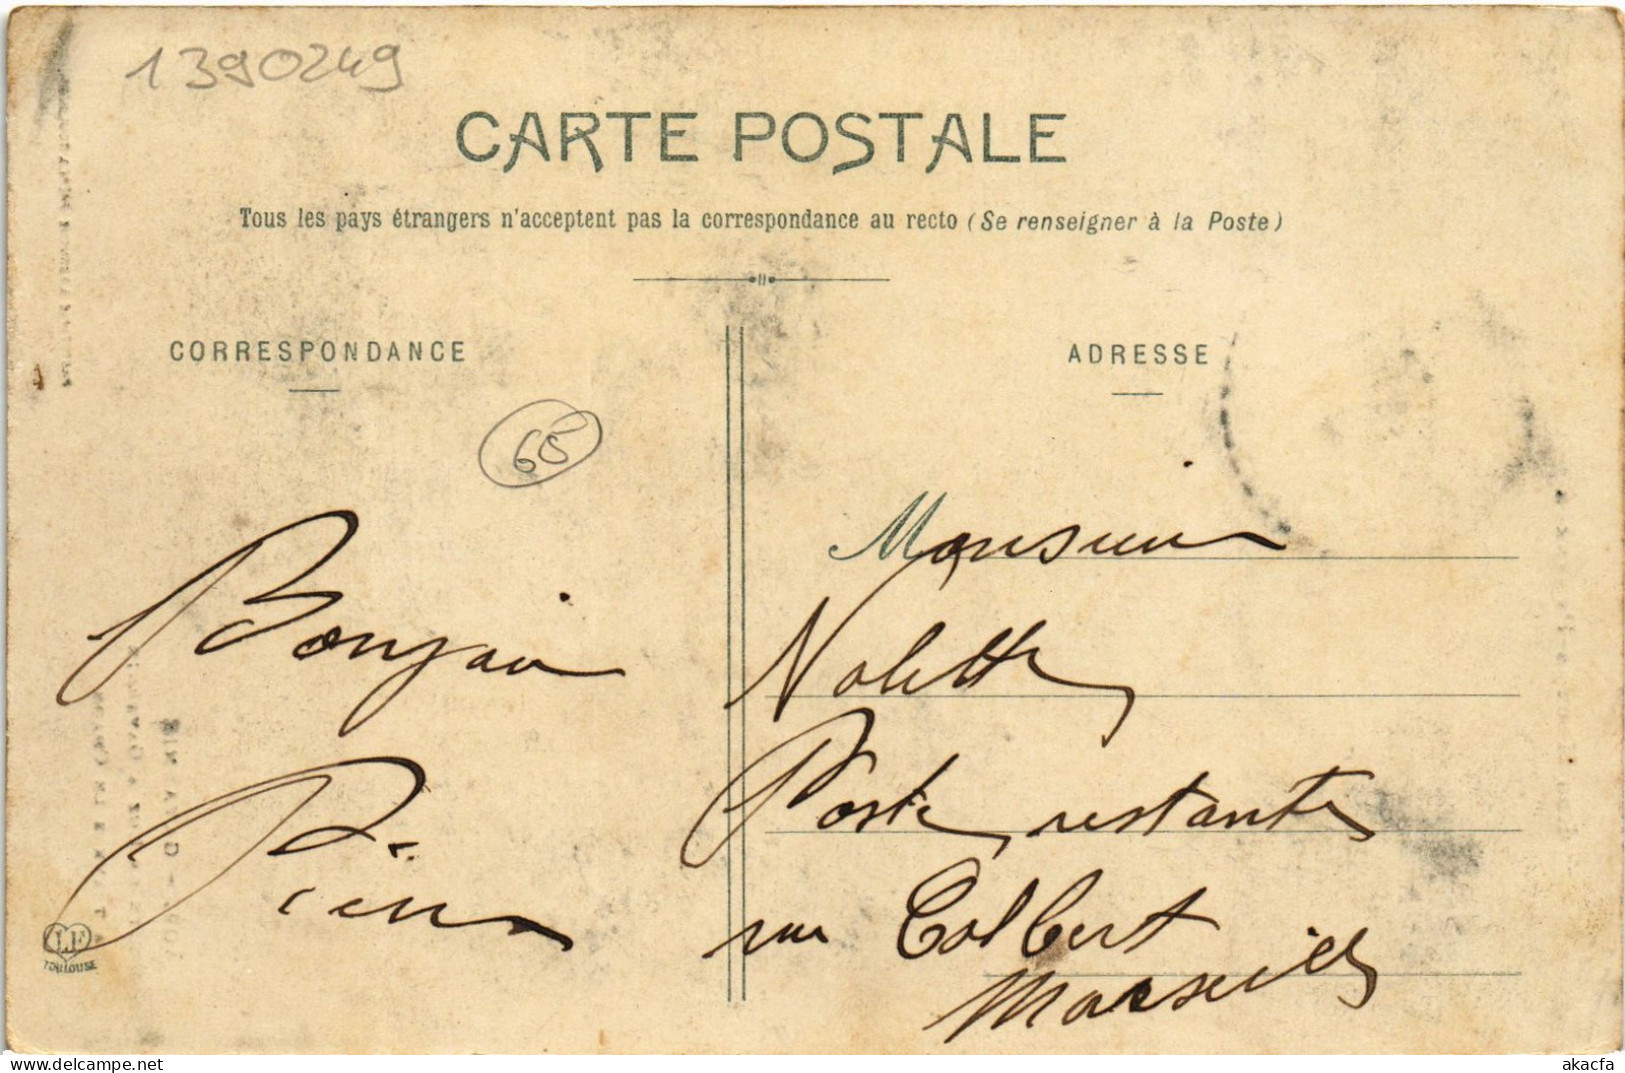 1390249
CARTE POSTALE
Tous les pays étrangers n'acceptent pas la correspondance au recto (Se renseigner à la Poste)
CORRESPONDANCE
ADRESSE
65
Monsieur
Bonjour
Nolette
Poste restante
Pierre
rue Colbert
Marseille
LF
TOULOUSE
delcampe.net
akacfa